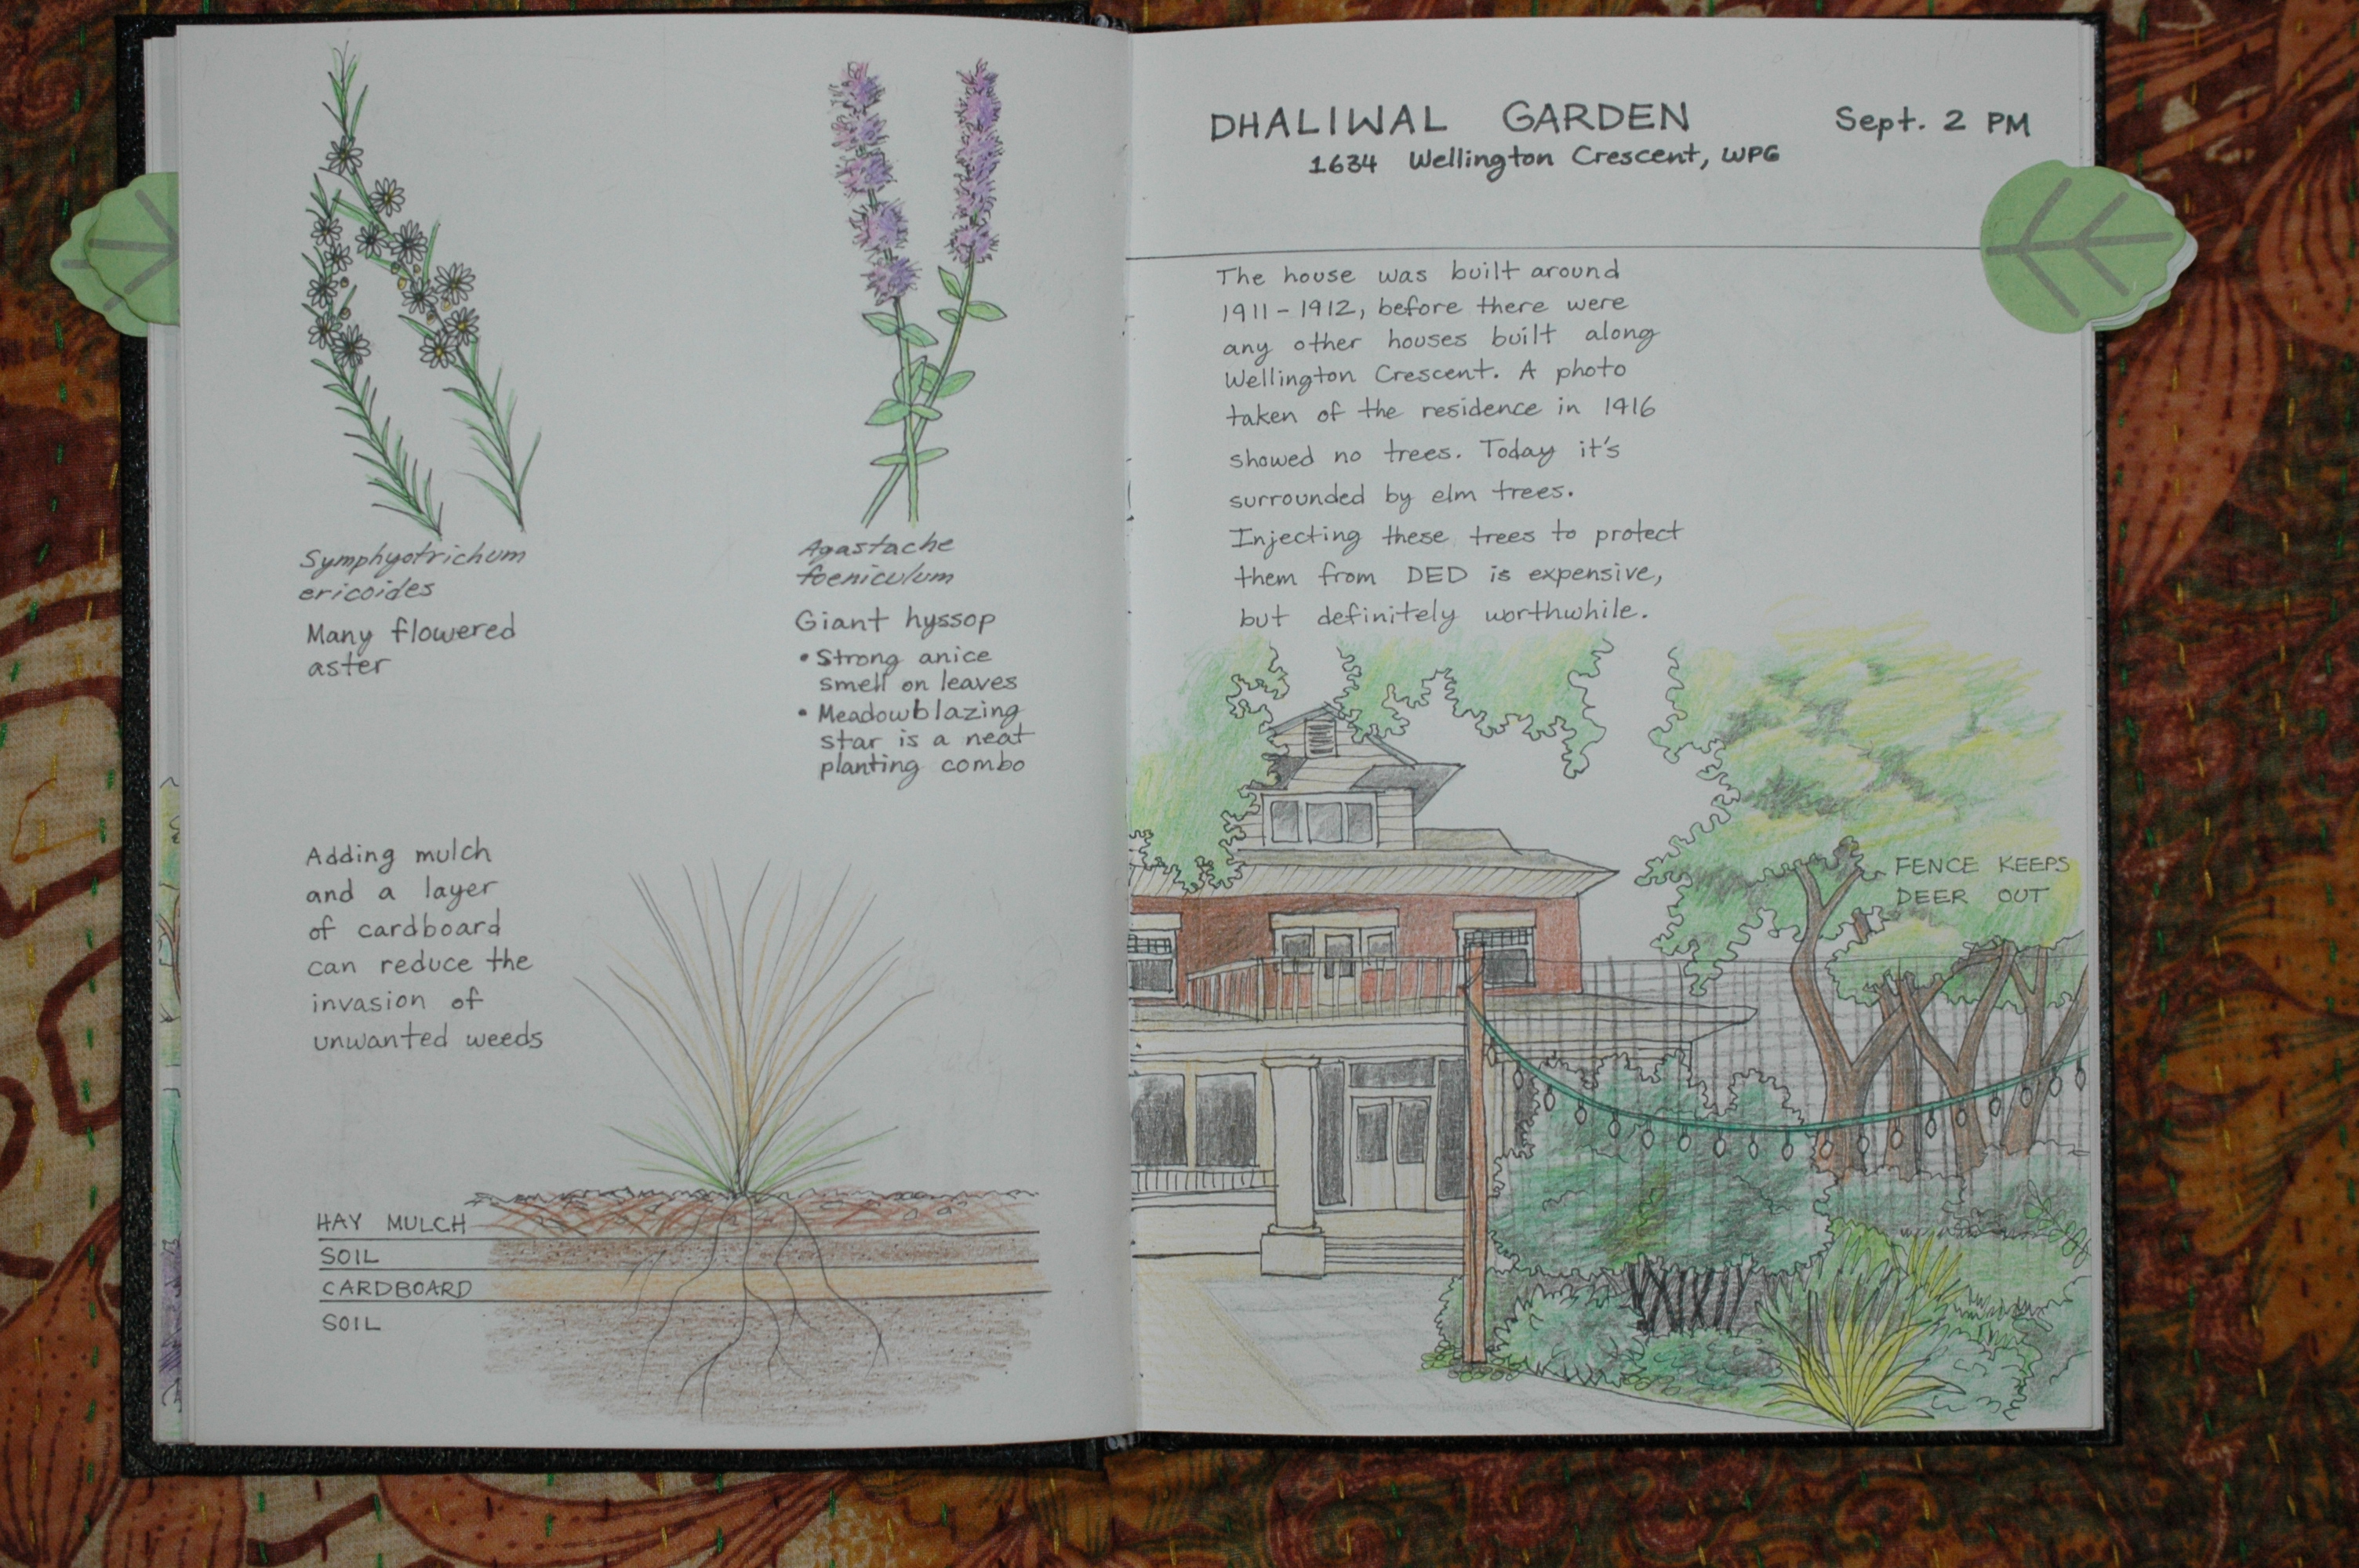 Symphyotrichum
ericoides
Many flowered
aster
Agastache
foeniculum
Giant hyssop
• Strong anice
smell on leaves
• Meadowblazing
star is a neat
planting combo
Adding mulch
and a layer
of cardboard
can reduce the
invasion of
unwanted weeds
HAY MULCH
SOIL
CARDBOARD
SOIL
DHALIWAL GARDEN
Sept. 2 PM
1634 Wellington Crescent, WPG
The house was built around
1911-1912, before there were
any other houses built along
Wellington Crescent. A photo
taken of the residence in 1916
showed no trees. Today it's
surrounded by elm trees.
Injecting these trees to protect
them from DED is expensive,
but definitely worthwhile.
FENCE KEEPS
DEER OUT